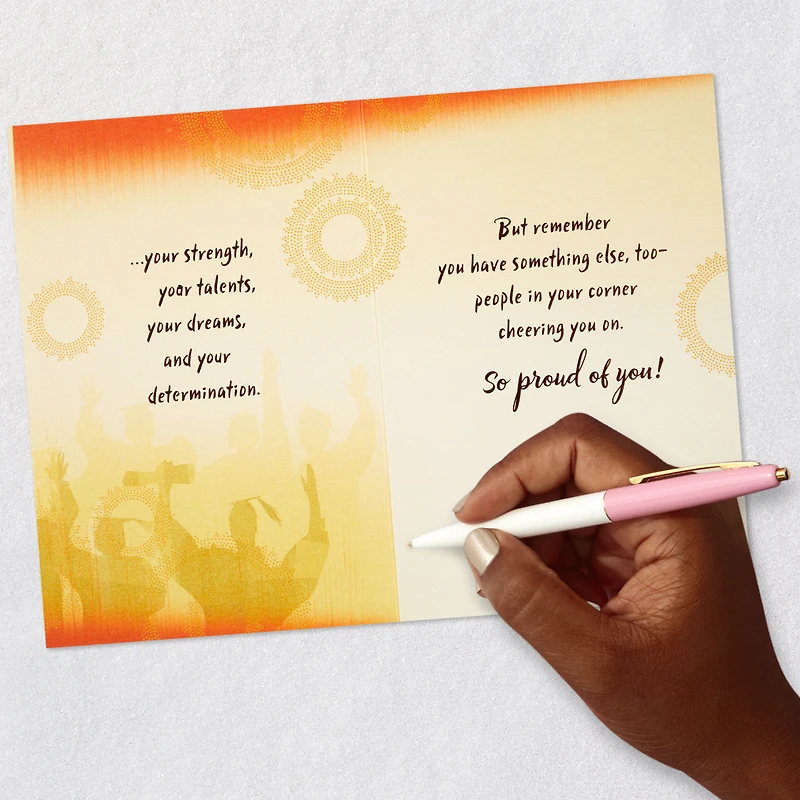 ...your strength,
your talents,
your dreams,
and your
determination.
But remember
you have something else, too–
people in your corner
cheering you on.
So proud of you!